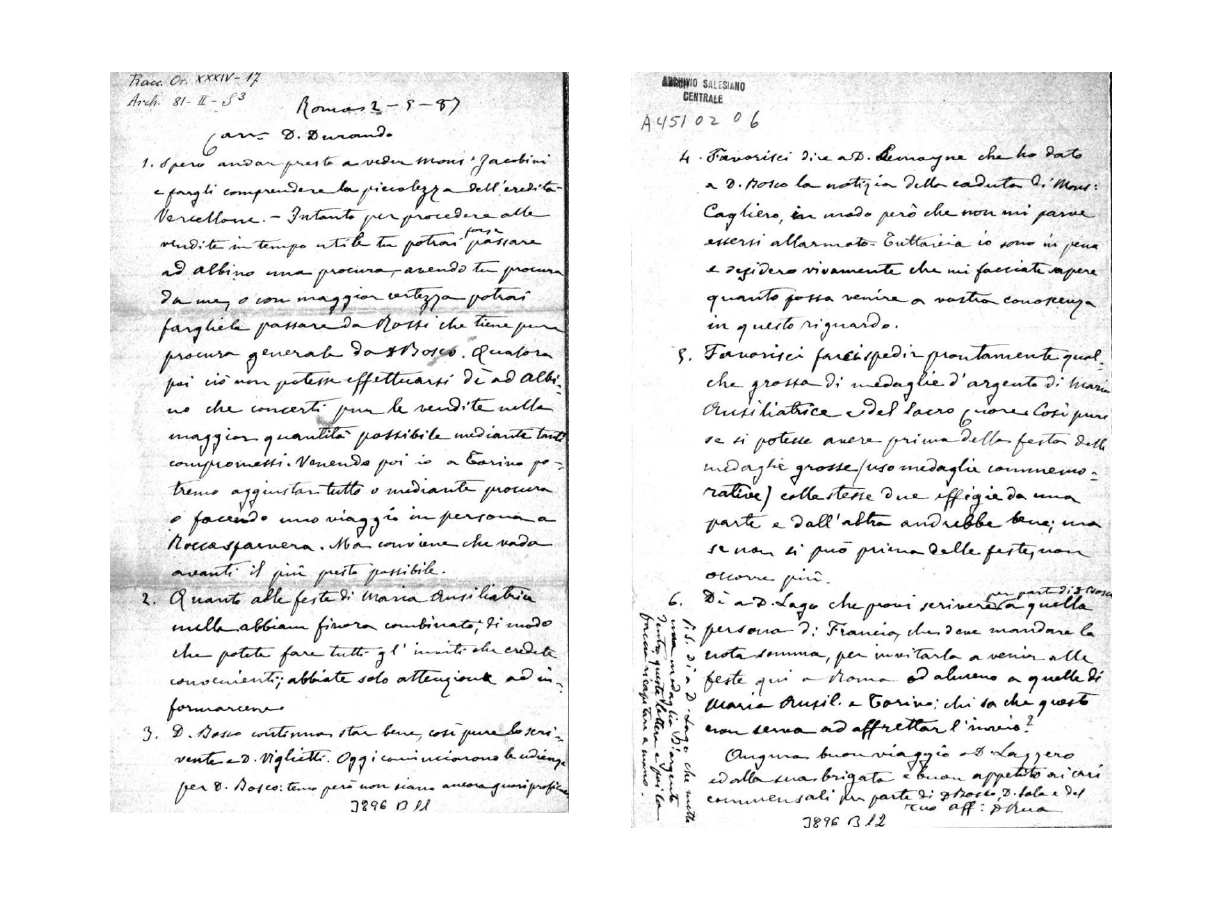 Racc. Or. XXXIV - 17
Arch. 81 - II - S3
Roma 2 - 5 - 87
Car.mo D. Durando
1. Spero andar presto a veder Mons. Jacobini
e fargli comprendere la piccolezza dell'eredità
Vercellone. - Intanto per procedere alle
vendite in tempo utile tu potrai forse passare
ad Albino una procura, avendo tu procura
da me, o con maggior certezza potrai
fargliela passare da Rossi che tiene pure
procura generale da D Bosco. Qualora
poi ciò non potesse effettuarsi dì ad Albi-
no che concerti pur le vendite nella
maggior quantità possibile mediante tanti
compromessi. Venendo poi io a Torino po-
tremo aggiustar tutto o mediante procura
o facendo uno viaggio in persona a
Roccasparvera. Ma conviene che vada
avanti il più presto possibile.
2. Quanto alle feste di Maria Ausiliatrice
nulla abbiam finora combinato; di modo
che potete fare tutti gl'inviti che credete
convenienti; abbiate solo attenzione ad in-
formarcene
3. D. Bosco continua star bene, così pure lo scri-
vente e D. Viglietti. Oggi cominciarono le udienze
per D. Bosco: temo però non siano ancora guari
3896 B 11
ARCHIVIO SALESIANO
CENTRALE
A 451 02 06
4. Favorisci dire a D. Lemoyne che ho dato
a D. Bosco la notizia della caduta di Mons:
Cagliero, in modo però che non mi parve
essersi allarmato. Tuttavia io sono in pena
e desidero vivamente che mi facciate sapere
quanto possa venire a vostra conoscenza
in questo riguardo.
5. Favorisci far ispedir prontamente qual-
che grossa di medaglie d'argento di Maria
Ausiliatrice e del Sacro Cuore. Così pure
se si potesse avere prima della festa delle
medaglie grosse (uso medaglie commemo-
rative) colle stesse due effigie da una
parte e dall'altra andrebbe bene; ma
se non si può prima delle feste, non
occorre più.
6. Dì a D. Lago che provi scrivere per parte di D Bosco a quella
persona di Francia, che deve mandare la
nota somma, per invitarla a venir alle
feste qui a Roma od almeno a quelle di
Maria Ausil. a Torino: chi sa che questo
non serva ad affrettar l'invio?
Auguro buon viaggio a D. Lazzero
ed alla sua brigata e buon appetito ai cari
commensali per parte di D Bosco, D. Sala e del
tuo aff: D Rua
P.S. Dì a D. Lago che metta
una medaglia d'argento
dentro questa lettera e poi la
faccia ricapitare a mano.
3896 B 12